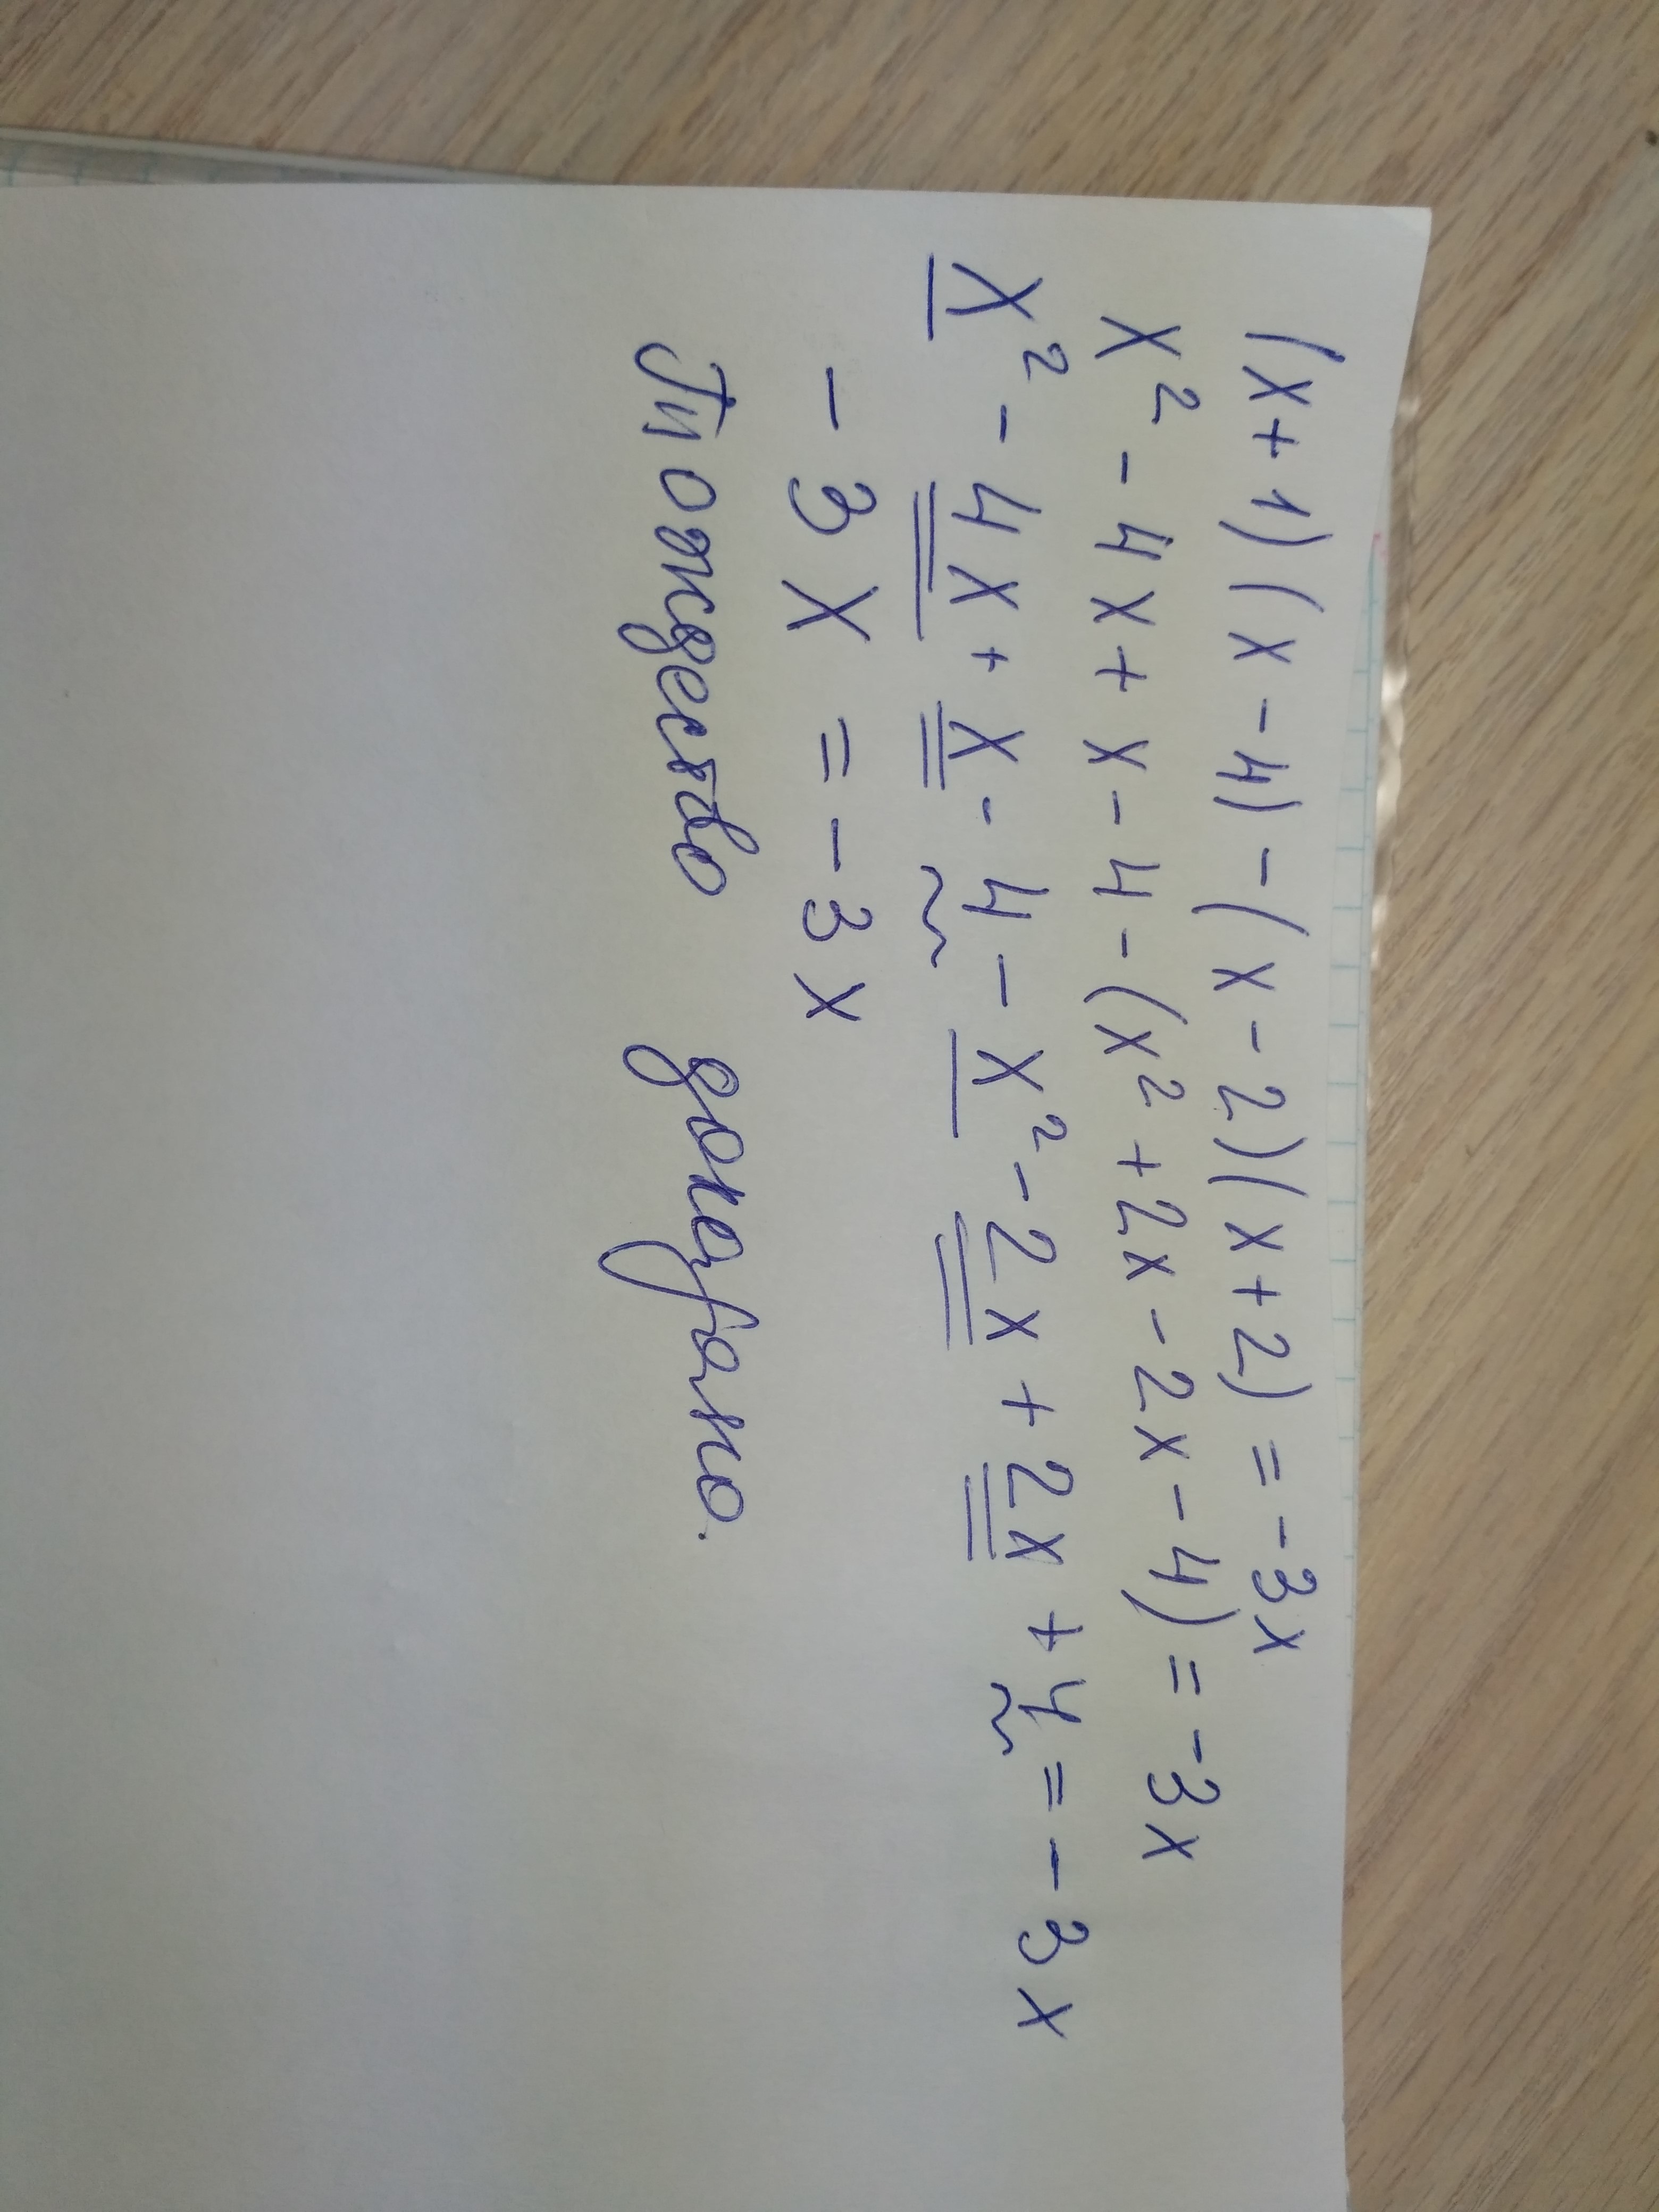 (x+1)(x-4)-(x-2)(x+2)=-3x
x²-4x+x-4-(x²+2x-2x-4)=-3x
x²-4x+x-4-x²-2x+2x+4=-3x
-3x=-3x
Тождество доказано.